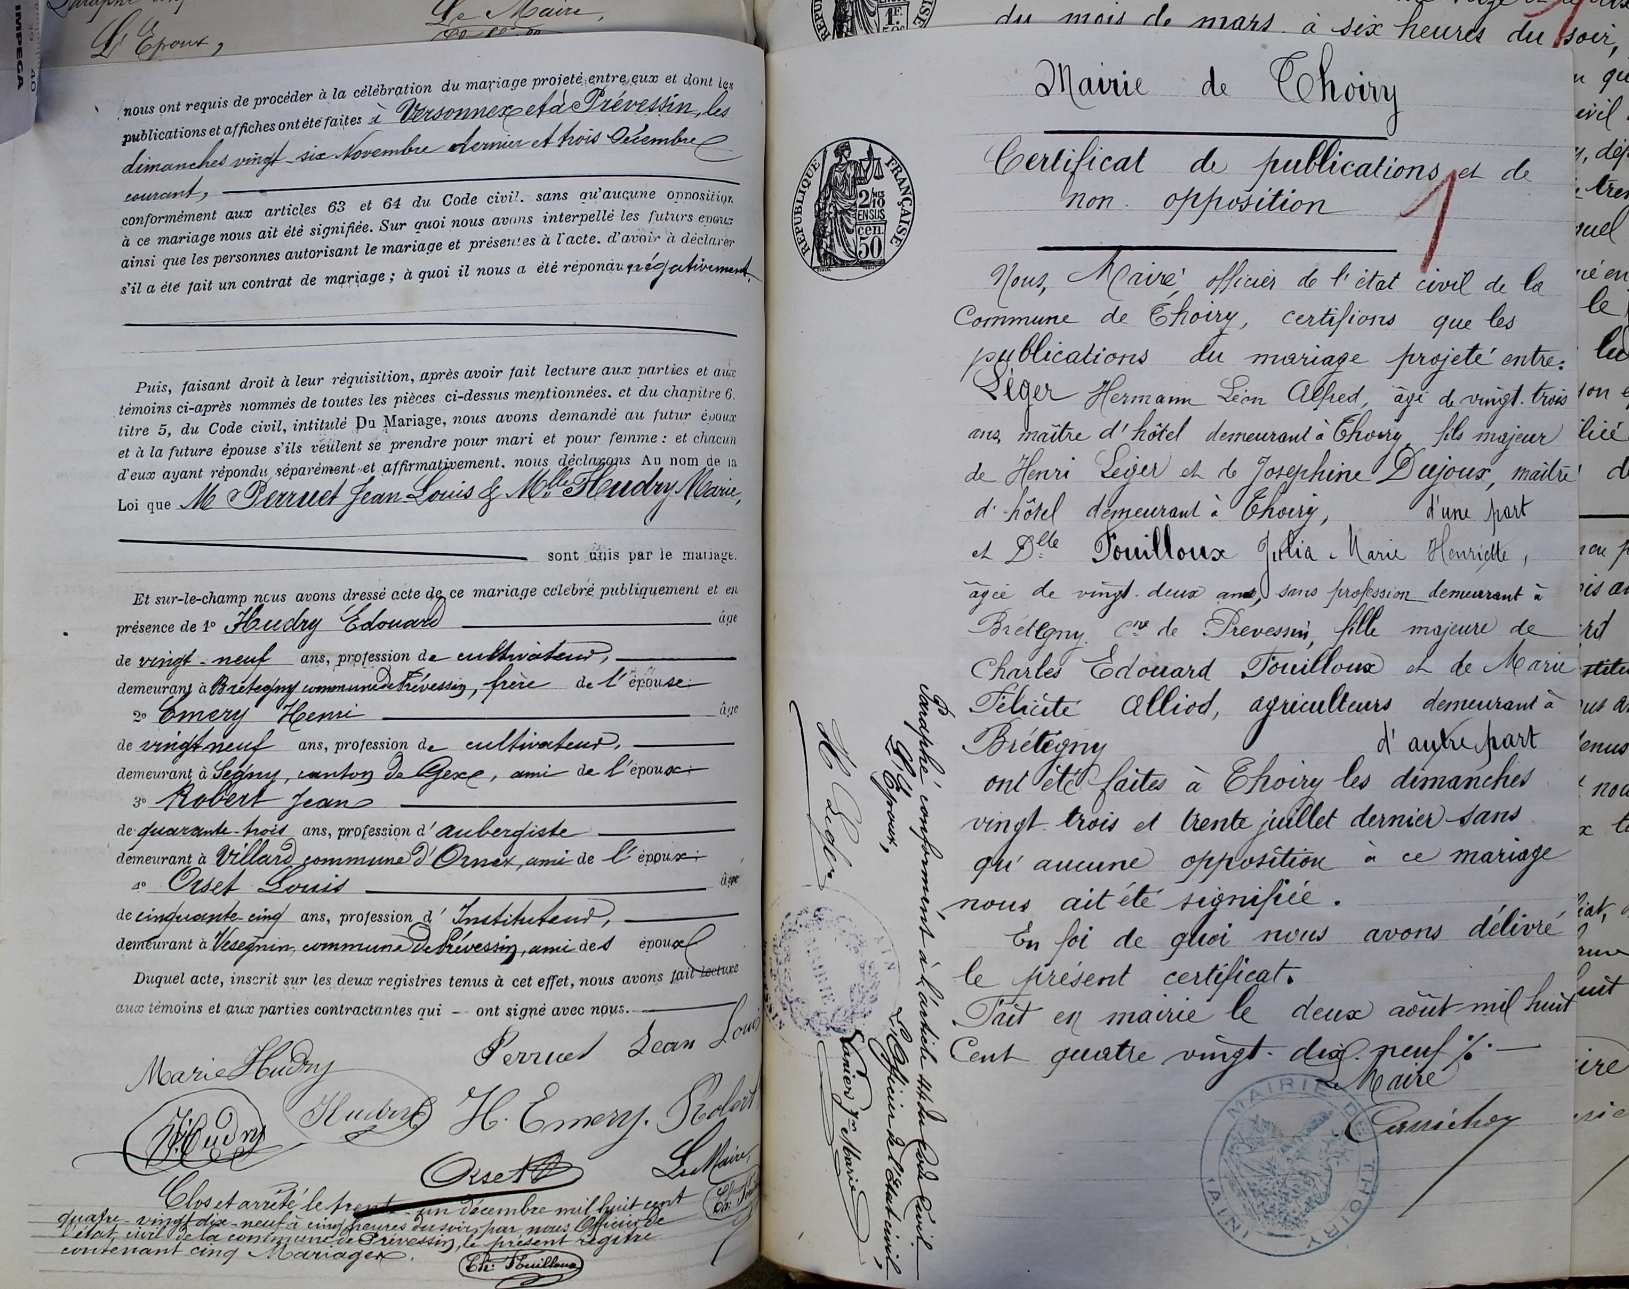 Le Maire,
L'Epoux,
nous ont requis de procéder à la célébration du mariage projeté entre eux et dont les
publications et affiches ont été faites à Versonnex et à Prévessin, les
dimanches vingt-six Novembre dernier et trois Décembre
courant,
conformément aux articles 63 et 64 du Code civil. sans qu'aucune opposition
à ce mariage nous ait été signifiée. Sur quoi nous avons interpellé les futurs epoux
ainsi que les personnes autorisant le mariage et présentes à l'acte. d'avoir à déclarer
s'il a été fait un contrat de mariage ; à quoi il nous a été répondu négativement.
Puis, faisant droit à leur réquisition, après avoir fait lecture aux parties et aux
témoins ci-après nommés de toutes les pièces ci-dessus mentionnées. et du chapitre 6.
titre 5, du Code civil, intitulé Du Mariage, nous avons demandé au futur époux
et à la future épouse s'ils veulent se prendre pour mari et pour femme : et chacun
d'eux ayant répondu séparément et affirmativement. nous déclarons Au nom de la
Loi que M Perruet Jean-Louis & Mlle Hudry Marie,
sont unis par le mariage.
Et sur-le-champ nous avons dressé acte de ce mariage célébré publiquement et en
présence de 1º Hudry Edouard âge
de vingt-neuf ans, profession de cultivateur,
demeurant à Brétegny commune de Prévessin, frère de l'épouse
2º Emery Henri âge
de vingt-neuf ans, profession de cultivateur,
demeurant à Ségny, canton de Gex, ami de l'époux
3º Robert Jean
de quarante-trois ans, profession d'aubergiste
demeurant à Villard commune d'Ornex, ami de l'époux
4º Orset Louis âgé
de cinquante-cinq ans, profession d'Instituteur,
demeurant à Vésegnin, commune de Prévessin, ami des époux
Duquel acte, inscrit sur les deux registres tenus à cet effet, nous avons fait lecture
aux témoins et aux parties contractantes qui ont signé avec nous.
Marie Hudry Perruet Jean Louis
Hudry H. Emery. Robert
Orset Le Maire,
Clos et arrêté le trente-un décembre mil huit cent
quatre-vingt dix-neuf à cinq heures du soir, par nous Officier de
l'état civil de la commune de Prévessin, le présent registre
contenant cinq Mariages.
Ch. Fouilloux
du mois de mars à six heures du soir,
Mairie de Thoiry
Certificat de publications et de
non opposition
1
REPUBLIQUE FRANÇAISE
2/10
EN SUS
50 cen
Nous, Maire, officier de l'état civil de la
Commune de Thoiry, certifions que les
publications du mariage projeté entre:
Léger Hermann Léon Alfred, âgé de vingt-trois
ans, maître d'hôtel demeurant à Thoiry, fils majeur
de Henri Léger et de Josephine Dujoux, maître
d'hôtel demeurant à Thoiry, d'une part
et Dlle Fouilloux Julia Marie Henriette,
âgée de vingt-deux ans, sans profession demeurant à
Brétegny Cne de Prevessin, fille majeure de
Charles Edouard Fouilloux et de Marie
Félicité Alliod, agriculteurs demeurant à
Brétégny d'autre part
ont été faites à Thoiry les dimanches
vingt-trois et trente juillet dernier sans
qu'aucune opposition à ce mariage
nous ait été signifiée.
En foi de quoi nous avons délivré
le présent certificat.
Fait en mairie le deux août mil huit
Cent quatre vingt-dix-neuf %.
Le Maire
MAIRIE DE THOIRY (AIN)
Paraphé conformément à l'article 44 du Code Civil
L'Epoux,
L'Officier de l'Etat civil,